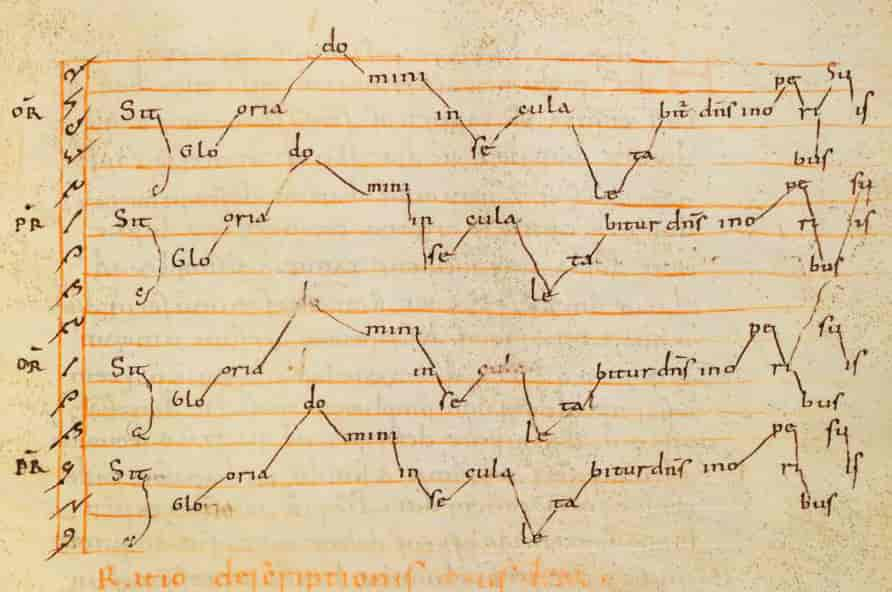 OR̄ Sit Glo oria do mini in se cula le ta bit̄ dn̄s ino pe ri bus su is
PR̄ Sit Glo oria do mini in se cula le ta bitur dn̄s ino pe ri bus su is
OR̄ Sit Glo oria do mini in se cula le ta bitur dn̄s ino pe ri bus su is
PR̄ Sit Glo oria do mini in se cula le ta bitur dn̄s ino pe ri bus su is
Ratio descriptionis